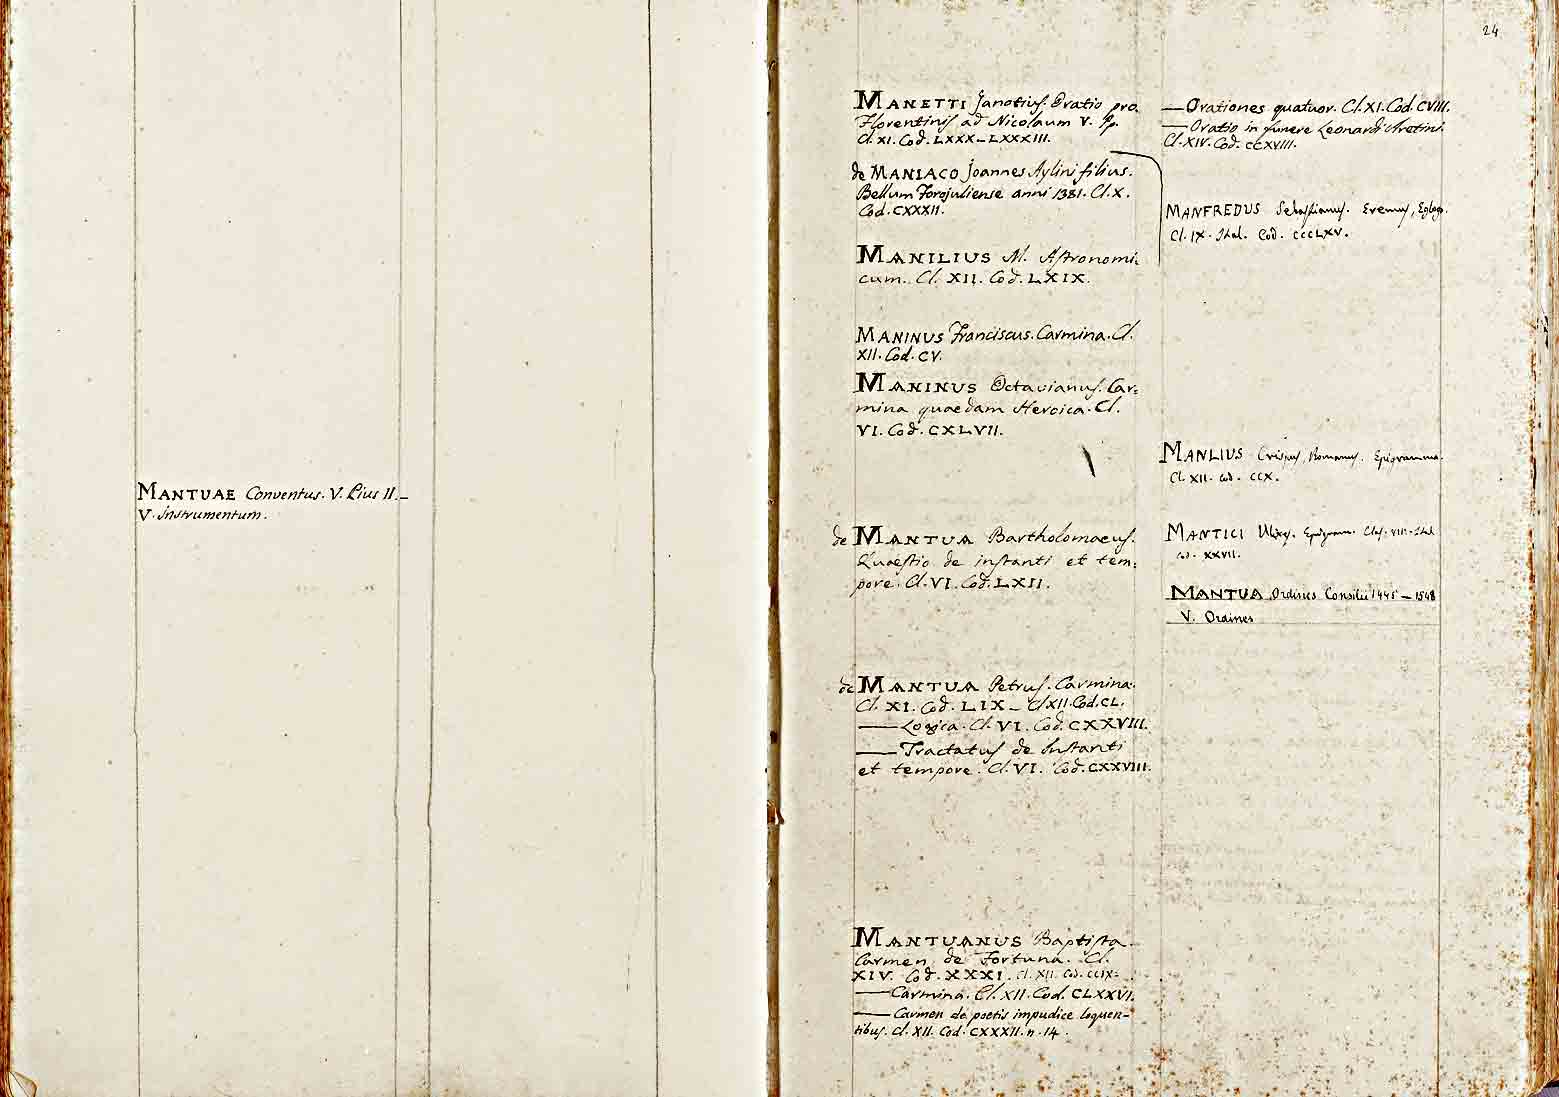 MANTUAE Conventus. V. Pius II.—
V. Instrumentum.
24
MANETTI Janotius. Oratio pro
Florentinis ad Nicolaum V. Pp.
Cl. XI. Cod. LXXX–LXXXIII.
de MANIACO Joannes Aylini filius.
Bellum Forojuliense anni 1381. Cl. X.
Cod. CXXXII.
MANILIUS M. Astronomi:
cum. Cl. XII. Cod. LXIX.
MANINUS Franciscus. Carmina. Cl.
XII. Cod. CV.
MANINUS Octavianus. Car:
mina quaedam Heroica. Cl.
VI. Cod. CXLVII.
de MANTUA Bartholomaeus.
Quaestio de instanti et tem:
pore. Cl. VI. Cod. LXII.
de MANTUA Petrus. Carmina.
Cl. XI. Cod. LIX — Cl XII. Cod. CL.
— Logica. Cl. VI. Cod. CXXVIII.
— Tractatus de Instanti
et tempore. Cl. VI. Cod. CXXVIII.
MANTUANUS Baptista
Carmen de Fortuna. Cl.
XIV. Cod. XXXI. Cl. XII. Cod. CCIX.
— Carmina. Cl. XII. Cod. CLXXVI.
— Carmen de poetis impudice loquen-
tibus. Cl. XII. Cod. CXXXII. n. 14.
— Orationes quatuor. Cl. XI. Cod. CVIII.
— Oratio in funere Leonardi Aretini.
Cl. XIV. Cod. CCXVIII.
MANFREDUS Sebastianus. Eremus, Eglog.
Cl. IX. Ital. Cod. CCCLXV.
MANLIUS Crispus, Romanus. Epigramma.
Cl. XII. Cod. CCX.
MANTICI Ulixes. Epigram. Clas. VIII. Ital
Cod. XXVII.
MANTUA Ordines Consilii 1445 — 1548
V. Ordines